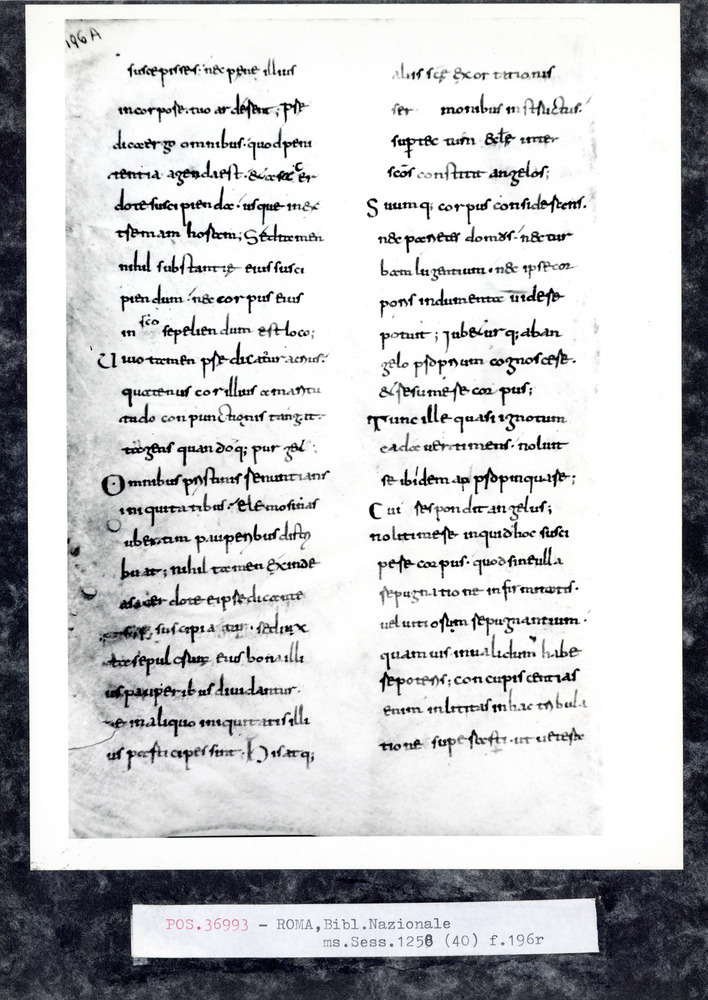 196A
suscepisses· nec pene illius
in corpore tuo arderent; pre
dico ergo omnibus· quod peni
tentia agenda est· & a sac er
dote suscipienda· usque in ex
tremam horam; Sed tamen
nihil substantię eius susci
piendum· nec corpus eius
in sc̄o sepeliendum est loco;
Uiuo tamen predicatur acrius·
quatenus cor illius amaritu
tudo conpunctionis tangit·
tangens quandoq; purget·
Omnibus pristinis renuntians
iniquitatibus· elemosinas
ubertim pauperibus distri
buat; nihil tamen exinde
a sacerdote eipredicante
suscipiatur· sed iux
ta sepulcrum eius bona illi
us pauperibus diuidantur·
ne in aliquo iniquitatis illi
us participes sint· His atq;
aliis scę exortationis
ser monibus instructus·
super tectum ecclę inter
scōs constitit angelos;
Suumq; corpus considerans·
nec parietes domus· nec tur
bam lugentium· nec ipse cor
poris indumenta uidere
potuit; Iubetur q; ab an
gelo proprium cognoscere·
& resumere corpus;
Tunc ille quasi ignotum
cadauer timens· noluit
se ibidem ap propinquare;
Cui respondit angelus;
noli timere inquid hoc susci
pere corpus· quod sine ulla
repugnatione infirmitatis·
uel uitiorum repugnantium·
quamuis inualidum habe
re poteris; concupiscentias
enim inlicitas in hac tribula
tione superasti· ut ueteste
POS.36993 - ROMA,Bibl.Nazionale
ms.Sess.1258 (40) f.196r